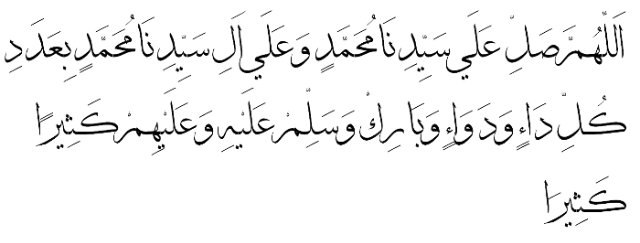 اَللّٰهُمَّ صَلِّ عَلَي سَيِّدِنَا مُحَمَّدٍ وَعَلَي اَلِ سَيِّدِنَا مُحَمَّدٍ بِعَدَدِ
كُلِّ دَاءٍ وَدَوَاءٍ وَبَارِكْ وَسَلِّمْ عَلَيْهِ وَعَلَيْهِمْ كَثِيرًا
كَثِيرَا